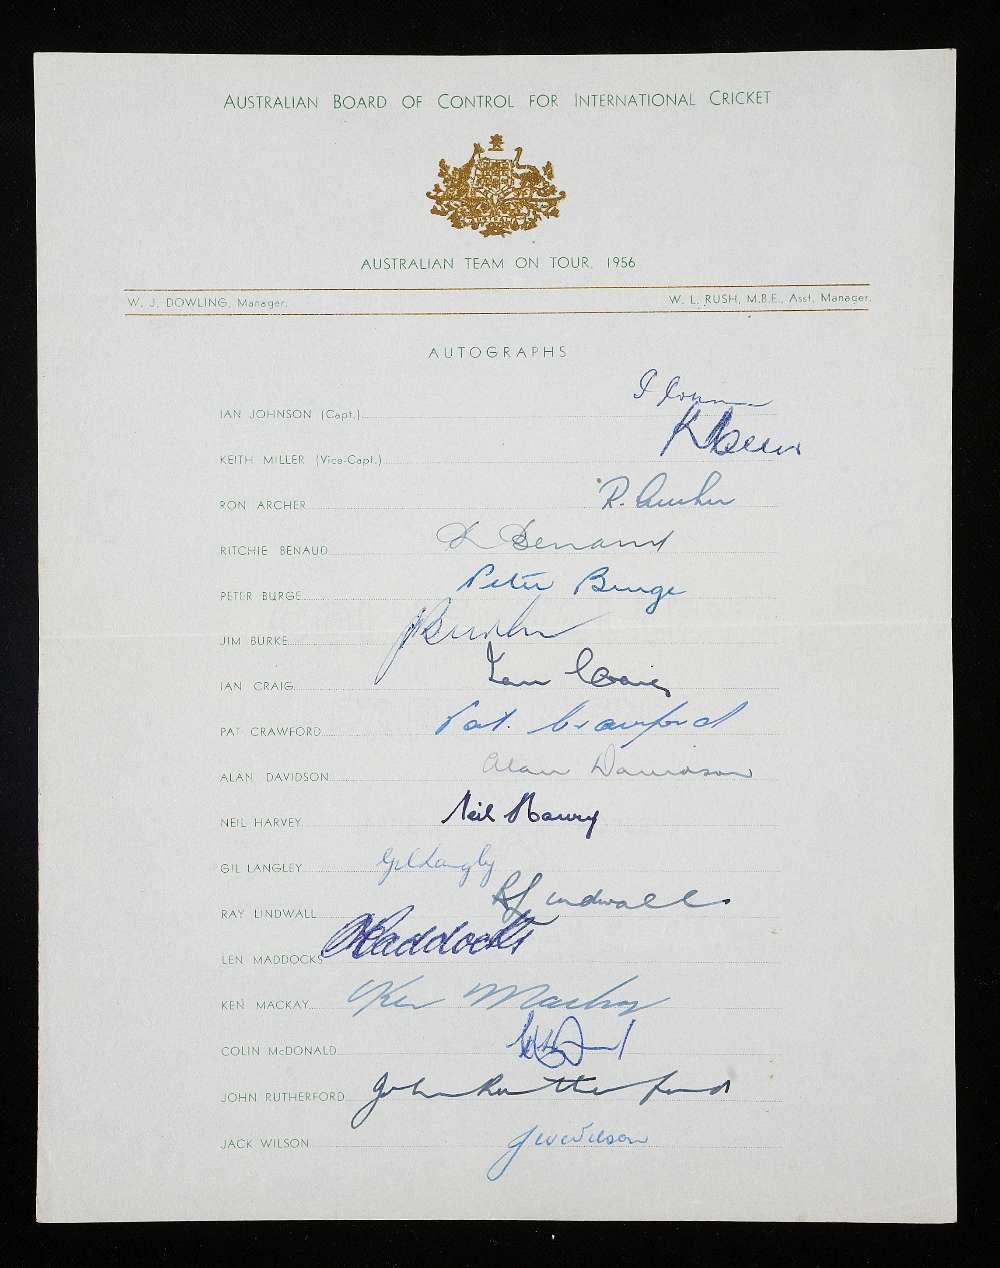 AUSTRALIAN BOARD OF CONTROL FOR INTERNATIONAL CRICKET
AUSTRALIA
AUSTRALIAN TEAM ON TOUR, 1956
W. J. DOWLING, Manager. W. L. RUSH, M.B.E., Asst. Manager.
AUTOGRAPHS
IAN JOHNSON (Capt.)
KEITH MILLER (Vice-Capt.)
RON ARCHER R. Archer
RITCHIE BENAUD R Benaud
PETER BURGE Peter Burge
JIM BURKE JBurke
IAN CRAIG Ian Craig
PAT CRAWFORD Pat. Crawford
ALAN DAVIDSON Alan Davidson
NEIL HARVEY Neil Harvey
GIL LANGLEY Gil Langley
RAY LINDWALL RLindwall
LEN MADDOCKS LMaddocks
KEN MACKAY Ken Mackay
COLIN McDONALD
JOHN RUTHERFORD John Rutherford
JACK WILSON J W Wilson